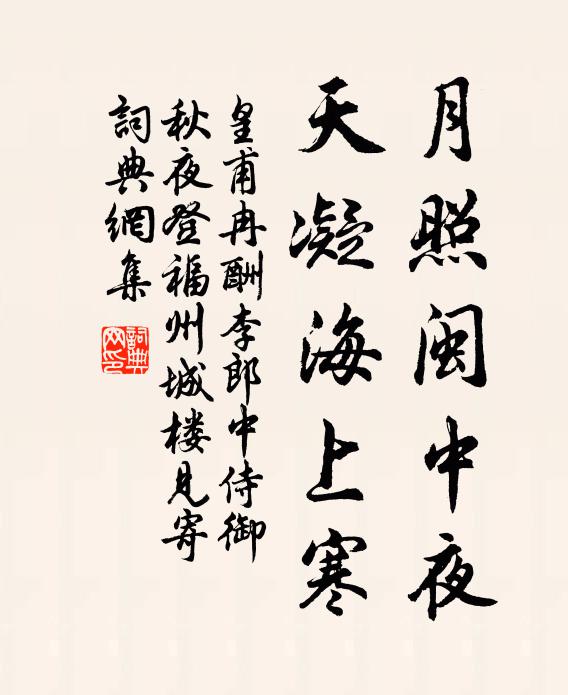 月照闽中夜
天凝海上寒
皇甫冉酬李郎中侍御
秋夜登福州城楼见寄
词典网集
詞典网印